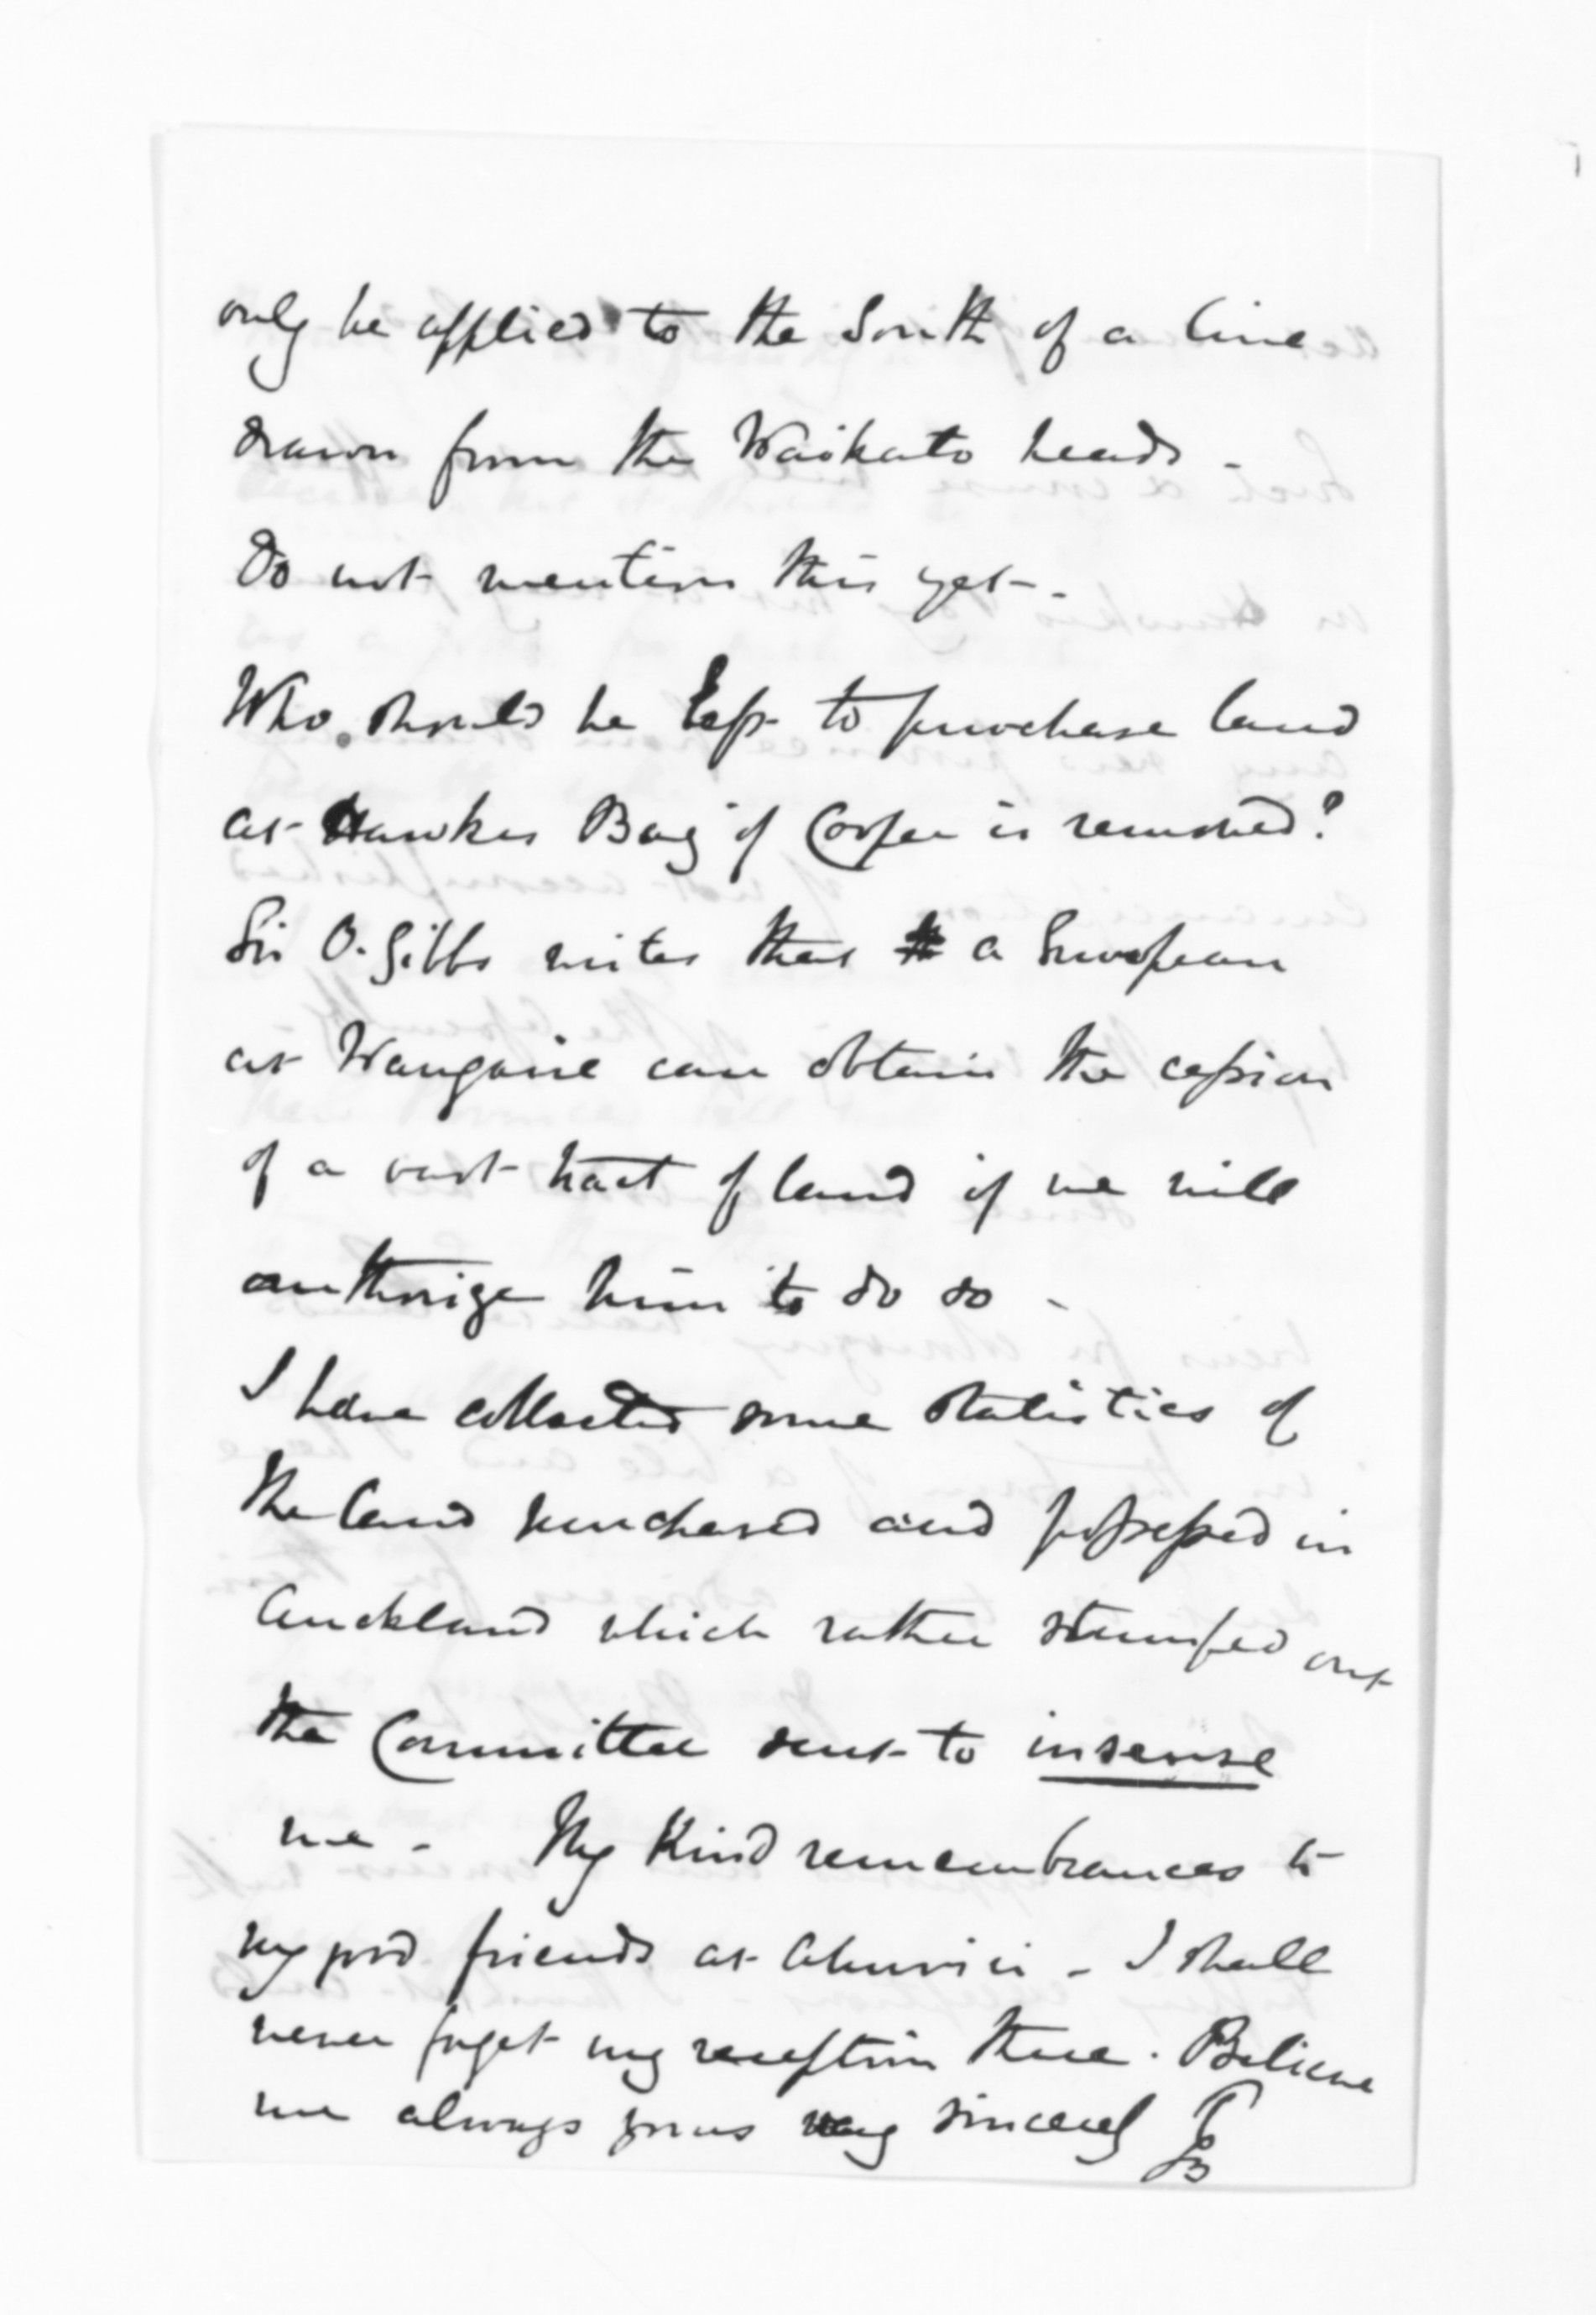 only be applied to the South of a line
drawn from the Waikato heads -
Do not mention this yet -.
Who should be left to purchase land
at Hawkes Bay if Cooper is removed?
Sir O. Gibbs writes that a European
at can obtain the cession
of a vast tract of land if we will
authorize him to do so -
I have collected some statistics of
the land purchased and possessed in
Auckland which rather stumped out
the Committee sent to insense
me - My Kind remembrances to
my good friends at Ahuriri - I shall
never forget my reception there. Believe
me always yours very sincerely